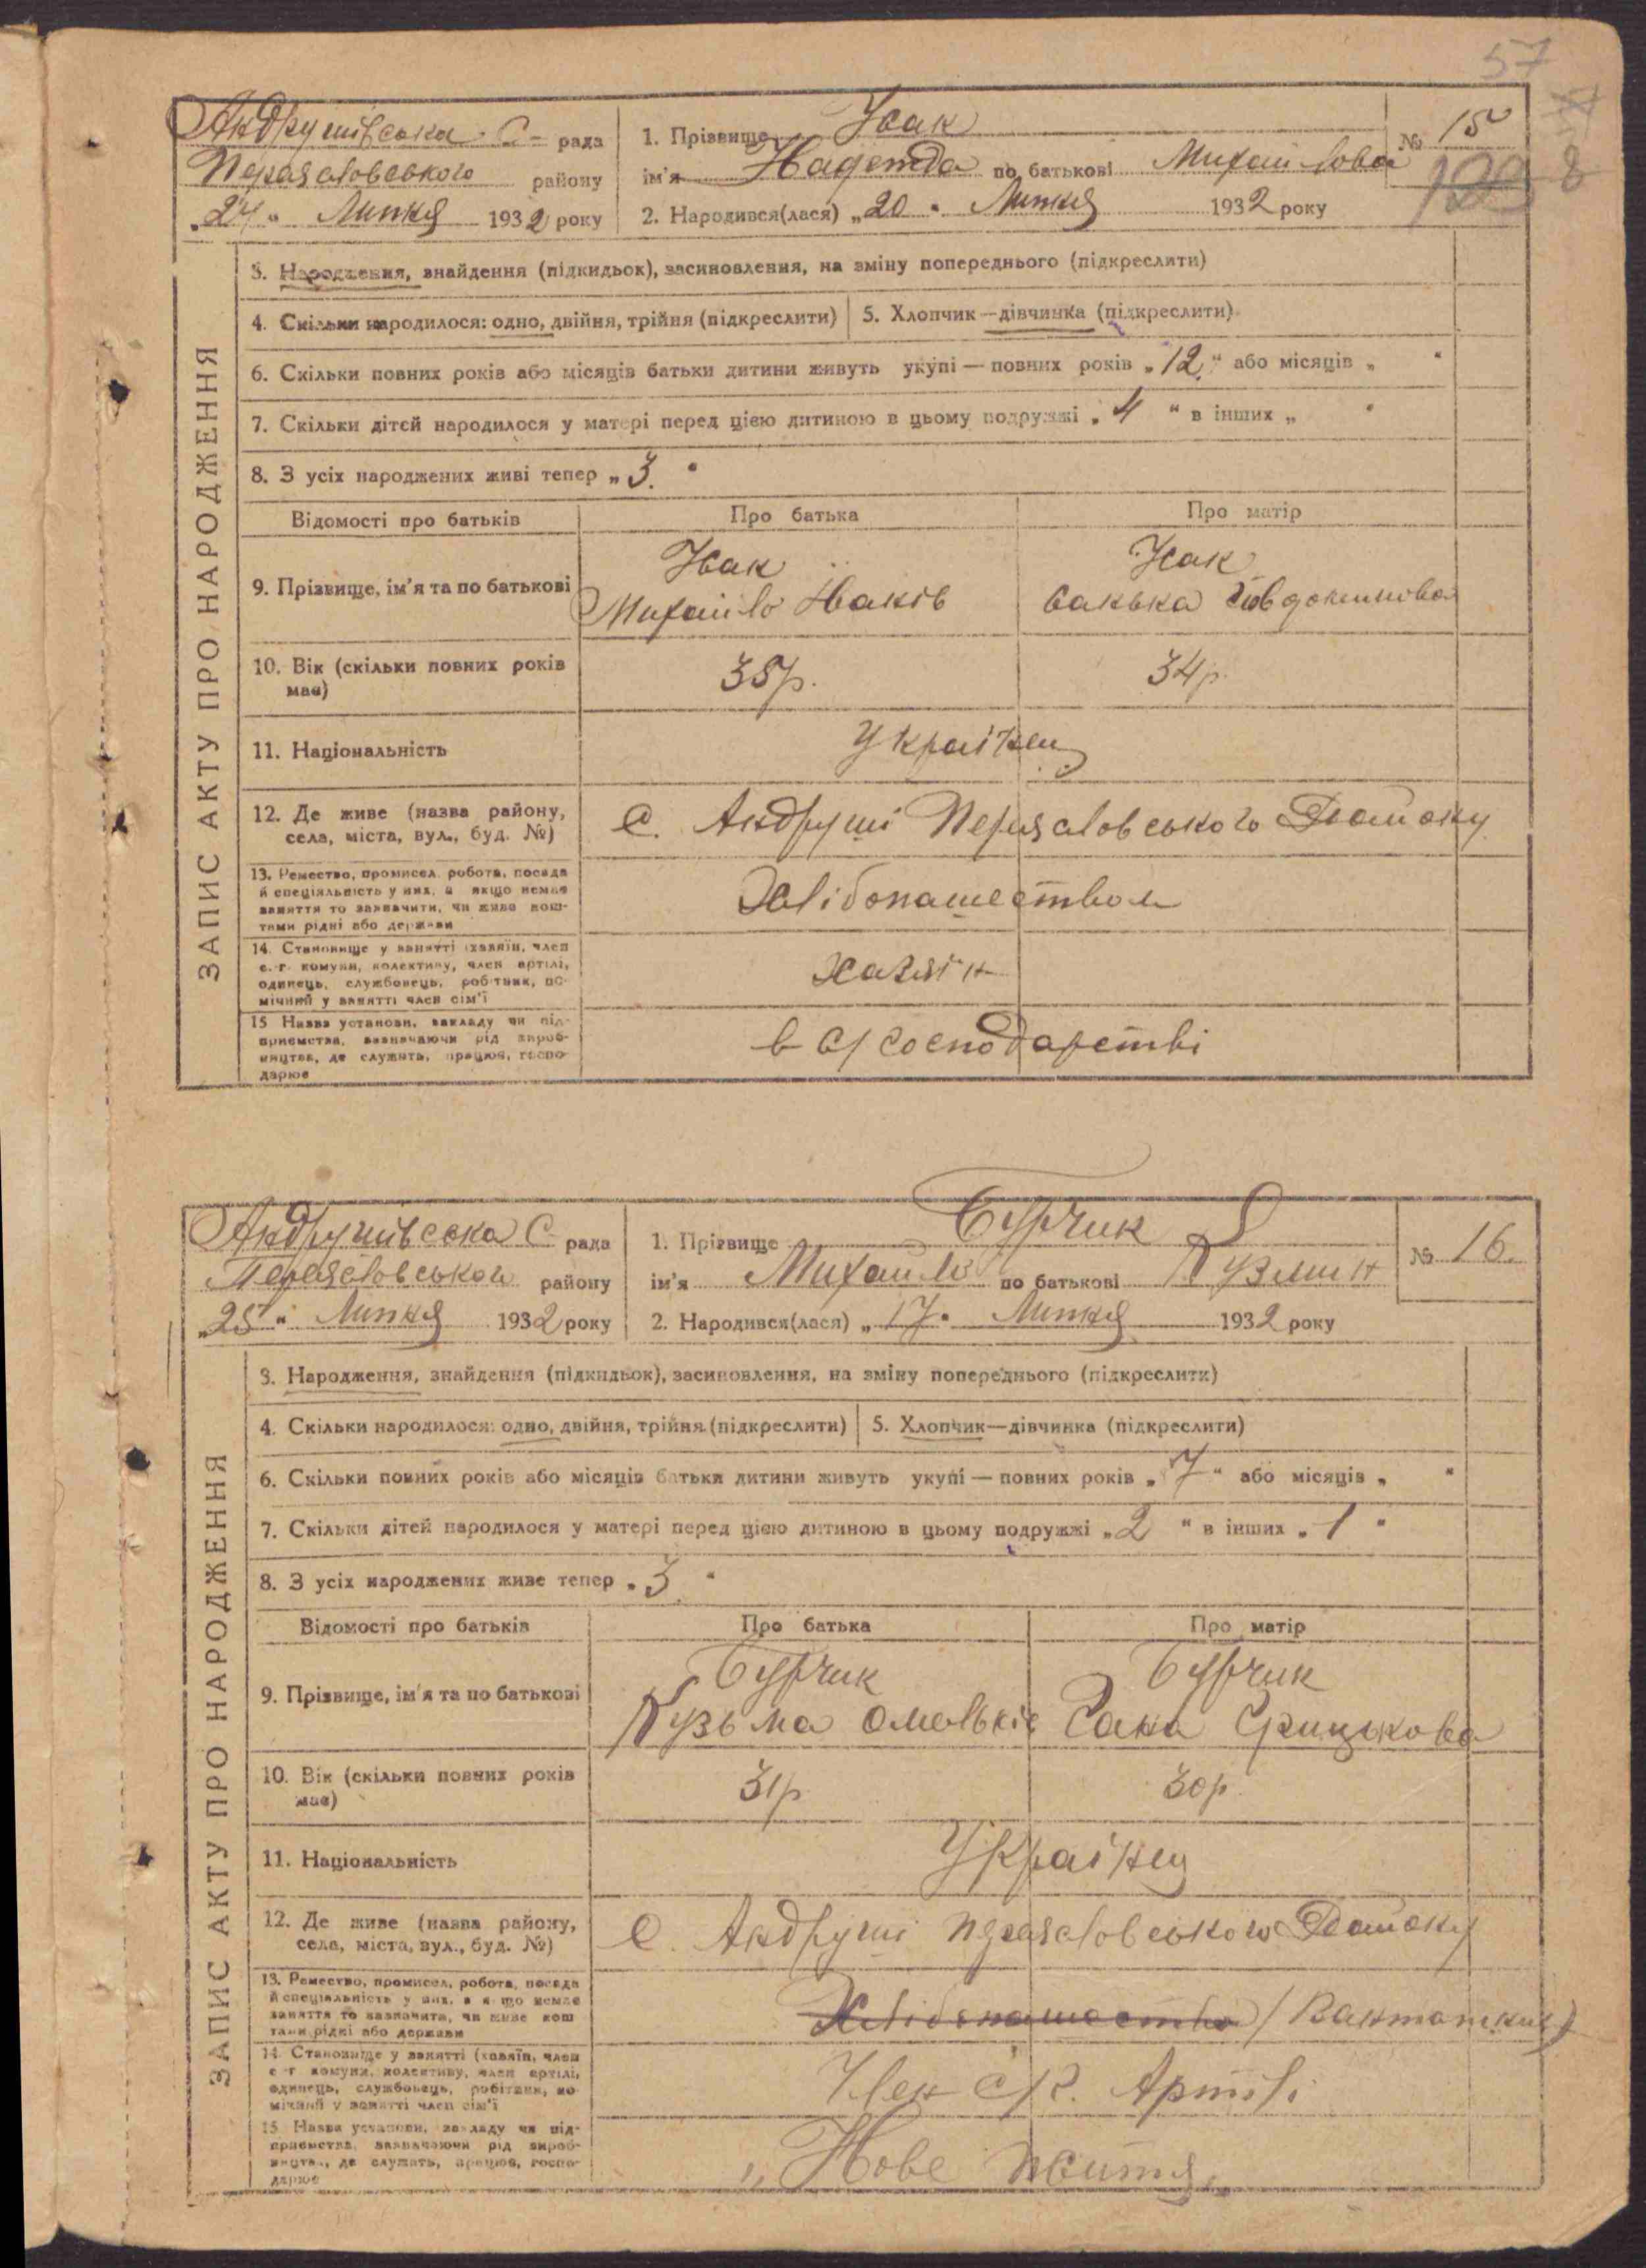 57
Андрушівська С- рада
Переяславського району
„24“ Липня 1932 року
1. Прізвище Усак
ім'я Надежда по батькові Михайлова
2. Народився(лася) „20“ Липня 1932 року
№ 15
ЗАПИС АКТУ ПРО НАРОДЖЕННЯ
3. Народження, знайдення (підкидьок), засиновлення, на зміну попереднього (підкреслити)
4. Скільки народилося: одно, двійня, трійня (підкреслити)
5. Хлопчик—дівчинка (підкреслити)
6. Скільки повних років або місяців батьки дитини живуть укупі — повних років „12“ або місяців „ “
7. Скільки дітей народилося у матері перед цією дитиною в цьому подружжі „4“ в інших „ “
8. З усіх народжених живі тепер „3“
Відомості про батьків Про батька Про матір
9. Прізвище, ім'я та по батькові
Усак
Михайло
Усак
10. Вік (скільки повних років має)
35р.
34р.
11. Національність
Українці
12. Де живе (назва району,
села, міста, вул., буд. №)
С. Андруші Переяславського Району
13. Ремество, промисел, робота, посада
й спеціяльність у них, а якщо немає
заняття то зазначити, чи живе кош-
тами рідні або держави
Хлібопашеством
14. Становище у занятті (хазяїн, член
с.-г. комуни, колективу, член артілі,
одинець, службовець, робітник, по-
мічний у занятті член сім'ї
хазяїн
15 Назва установи, закладу чи під-
приємства, зазначаючи рід вироб-
ництва, де служить, працює, госпо-
дарює
в с/господарстві
Андрушівська С- рада
Переяславського району
„25“ Липня 1932 року
1. Прізвище Бурчик
ім'я Михайло по батькові Кузмин
2. Народився(лася) „17“ Липня 1932 року
№ 16.
ЗАПИС АКТУ ПРО НАРОДЖЕННЯ
3. Народження, знайдення (підкидьок), засиновлення, на зміну попереднього (підкреслити)
4. Скільки народилося: одно, двійня, трійня (підкреслити)
5. Хлопчик—дівчинка (підкреслити)
6. Скільки повних років або місяців батьки дитини живуть укупі — повних років „7“ або місяців „ “
7. Скільки дітей народилося у матері перед цією дитиною в цьому подружжі „2“ в інших „1“
8. З усіх народжених живе тепер „3“
Відомості про батьків Про батька Про матір
9. Прізвище, ім'я та по батькові
Бурчик
Кузьма Омельків
Бурчик
Грицькова
10. Вік (скільки повних років
має)
31р
30р.
11. Національність
Українці
12. Де живе (назва району,
села, міста, вул., буд. №)
С. Андруші Переяславського Району
13. Ремество, промисел, робота, посада
й спеціяльність у них, а якщо немає
заняття то зазначити, чи живе кош
тами рідні або держави
Хлібопашество
14. Становище у занятті (хазяїн, член
с-г комуни, колективу, член артілі,
одинець, службовець, робітник, по
мічний у занятті член сім'ї
Член С/Г. Артілі
15 Назва установи, закладу чи під-
приємства, зазначаючи рід вироб-
ництва, де служить, працює, госпо-
дарює
„Нове життя„